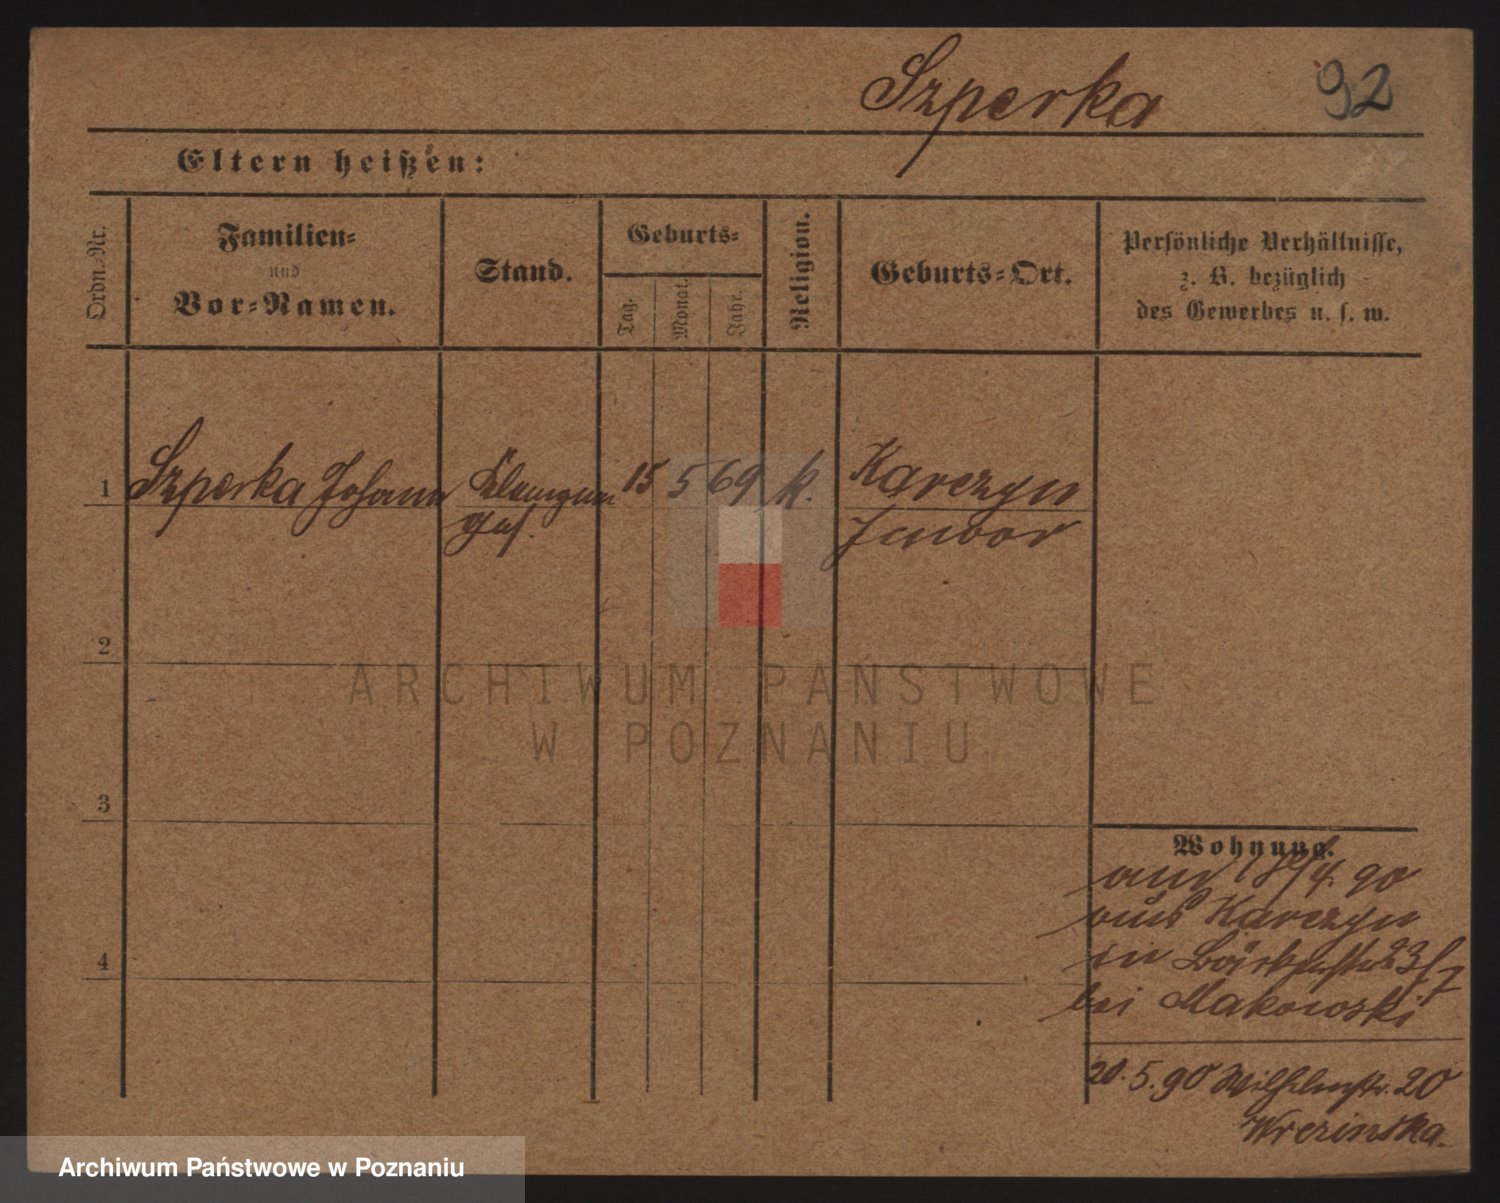 Szperka
92
Eltern heißen:
Ordn.-Nr.
Familien-
und
Vor-Namen.
Stand.
Geburts-
Tag.
Monat.
Jahr.
Religion.
Geburts-Ort.
Persönliche Verhältnisse,
z. B. bezüglich
des Gewerbes u. s. w.
1
Szperka Johann
15
5
69
k.
Karczyn
2
3
4
Wohnung.
90
aus Karczyn
in
bei Makowski
20.5.90 Wilhelmstr. 20
ARCHIWUM PAŃSTWOWE
W POZNANIU
Archiwum Państwowe w Poznaniu